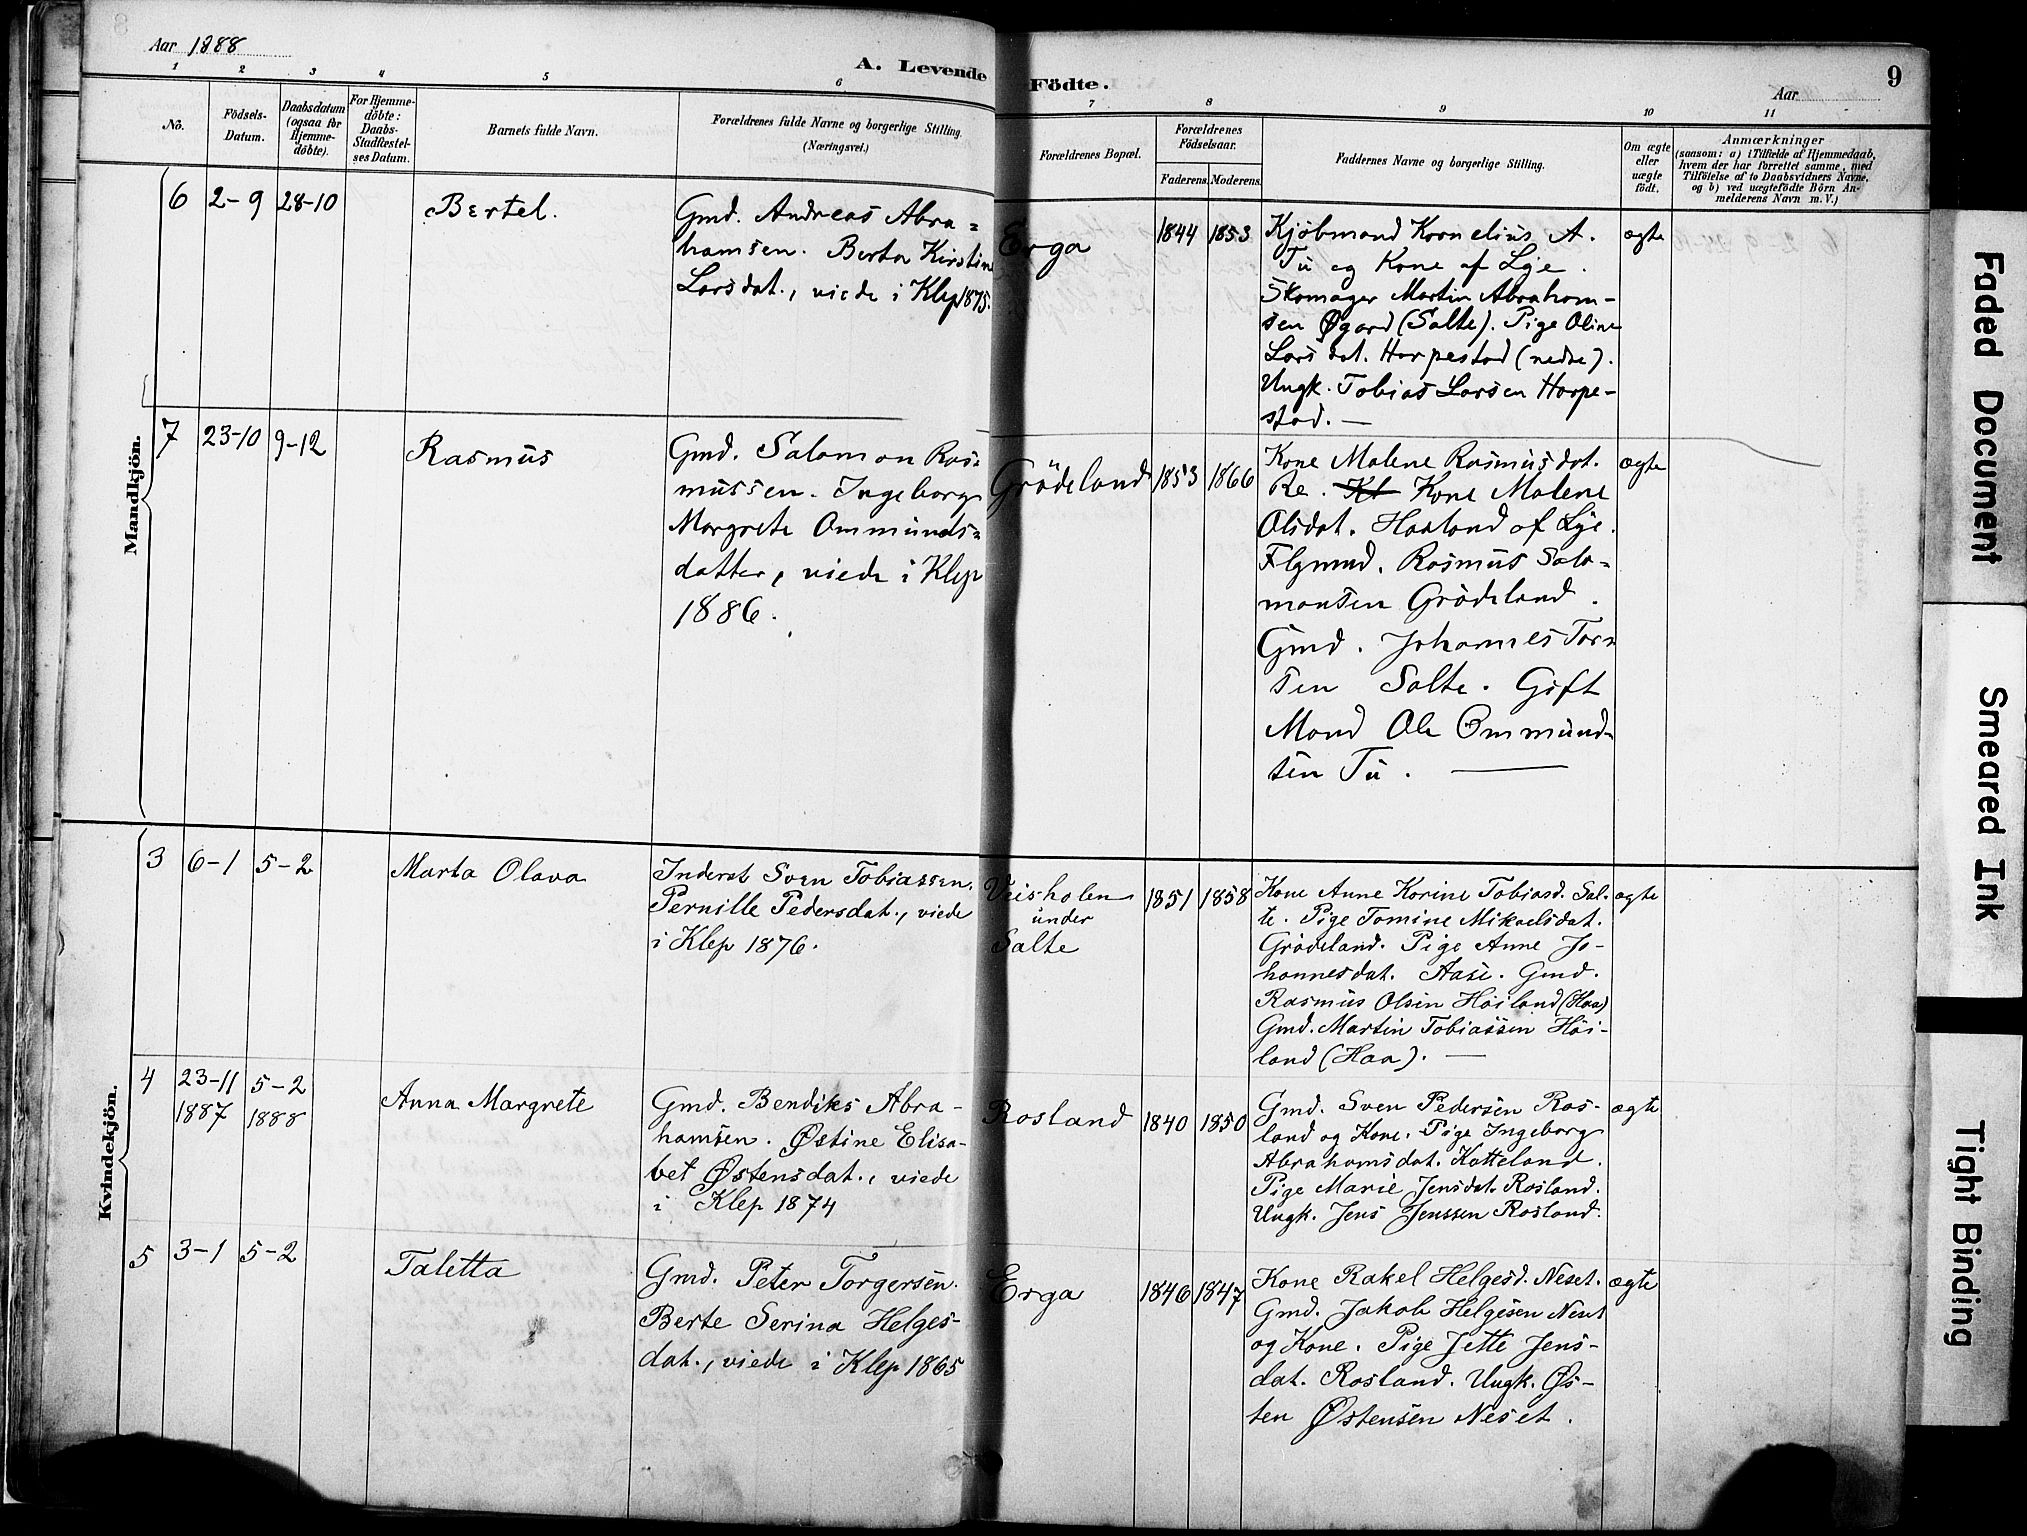 Aar 1888
A. Levende Födte.
9
Aar
1 2 3 4 5 6 7 8 9 10 11
No.
Födsels-
Datum.
Daabsdatum
(ogsaa for
Hjemme-
döbte).
For Hjemme-
döbte:
Daabs-
Stadfæstel-
ses Datum.
Barnets fulde Navn.
Forældrenes fulde Navne og borgerlige Stilling.
(Næringsvei.)
Forældrenes Bopæl.
Forældrenes
Födselsaar.
Faderens. Moderens.
Faddernes Navne og borgerlige Stilling.
Om ægte
eller
uægte
födt.
Anmærkninger
(saasom: a) i Tilfælde af Hjemmedaab,
hvem der har forrettet samme, med
Tilföielse af to Daabsvidners Navne,
og b) ved uægtefödte Börn An-
melderens Navn m. V.)
Mandkjön.
6 2-9 28-10 Bertel.
Gmd. Andreas Abra=
hamsen. Berta Kirstine
Larsdat., viede i Klep 1875.
Erga 1844 1853
Kjöbmand Kornelius A.
Tu og Kone af Lye.
Skomager Martin Abraham-
sen Øgard (Salte). Pige Oline
Larsdat. Harpestad (nedre).
Ungk. Tobias Larsen Harpe-
stad. —
ægte
7 23-10 9-12 Rasmus
Gmd. Salomon Ras=
mussen. Ingeborg
Margrete Ommunds=
datter, viede i Klep
1886.
Grödeland 1853 1866
Kone Malene Rasmusdat.
Re. Kl Kone Malene
Olsdat. Haaland af Lye.
Flgmd. Rasmus Salo-
monsen Grödeland.
Gmd. Johannes Tor=
sen Salte. Gift
Mand Ole Ommund-
sen Tu. —
ægte
Kvindekjön.
3 6-1 5-2 Marta Olava
Inderst Sven Tobiassen.
Pernille Pedersdat., viede
i Klep 1876.
Veisholen
under
Salte
1851 1858
Kone Anne Karine Tobiasd. Sal-
te. Pige Tomine Mikaelsdat.
Grödeland. Pige Anne Jo-
hannesdat. Aase. Gmd.
Rasmus Olsen Höiland (Haa)
Gmd. Martin Tobiassen Höi-
land (Haa). —
ægte
4 23-11 5-2
1887 1888
Anna Margrete
Gmd. Bendiks Abra-
hamsen. Østine Elisa-
bet Østensdat., viede
i Klep 1874
Rosland 1840 1850
Gmd. Sven Pedersen Ros-
land og Kone. Pige Ingeborg
Abrahamsdat. Katteland.
Pige Marie Jensdat. Rosland.
Ungk. Jens Jenssen Rosland.
ægte
5 3-1 5-2 Taletta
Gmd. Peter Torgersen.
Berte Serina Helges-
dat., viede i Klep 1865
Erga 1846 1847
Kone Rakel Helgesd. Neset.
Gmd. Jakob Helgesen Neset
og Kone. Pige Jette Jens-
dat. Rosland. Ungk. Øs-
ten Østensen Neset.
ægte
Faded Document
Smeared Ink
Tight Binding